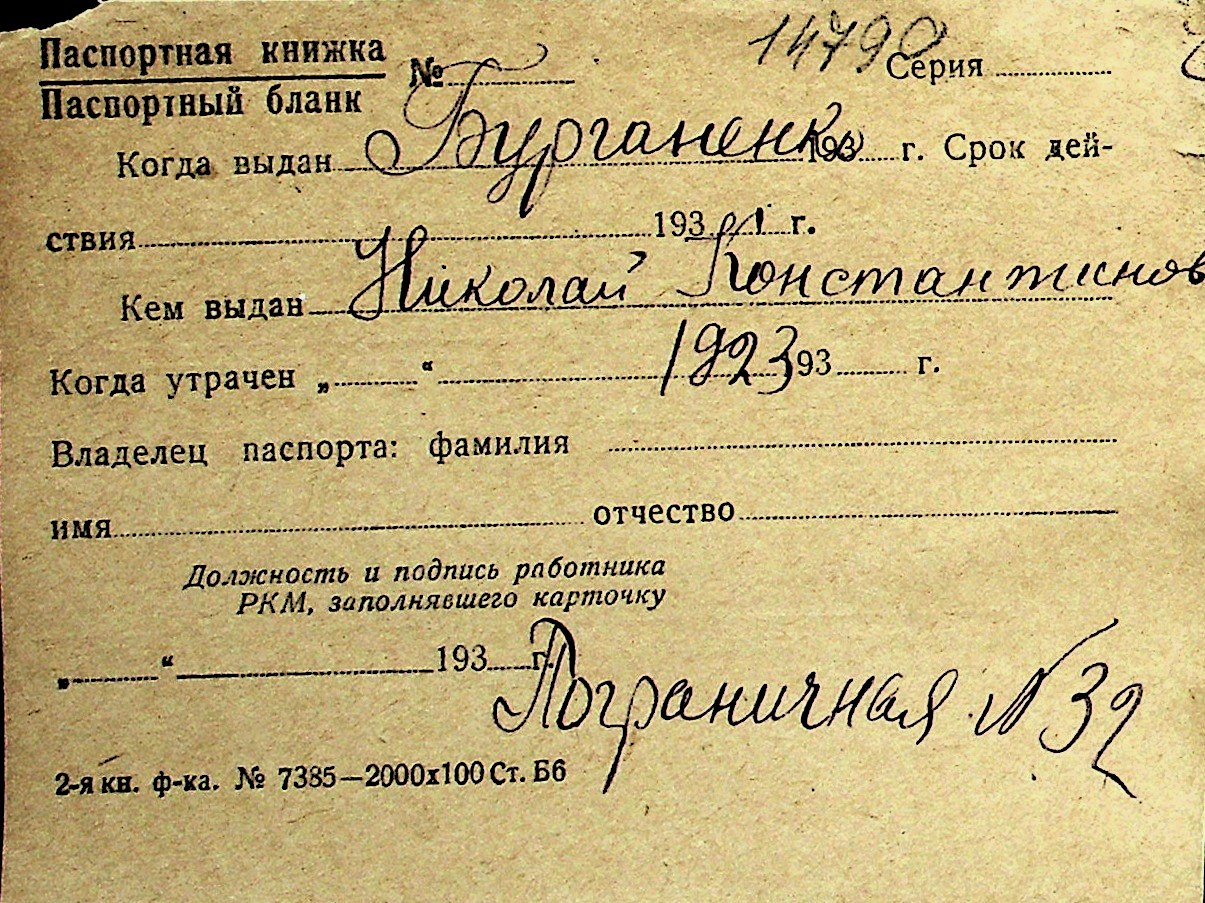 Паспортная книжка
Паспортный бланк № 1479 Серия
Бурганенко
Когда выдан 193 г. Срок дей-
ствия 193 г.
Николай Константинов
Кем выдан
1923
Когда утрачен „ “ 193 г.
Владелец паспорта: фамилия
имя отчество
Должность и подпись работника
РКМ, заполнявшего карточку
„ “ 193 г.
Пограничная № 32
2-я кн. ф-ка. № 7385—2000х100 Ст. Б6